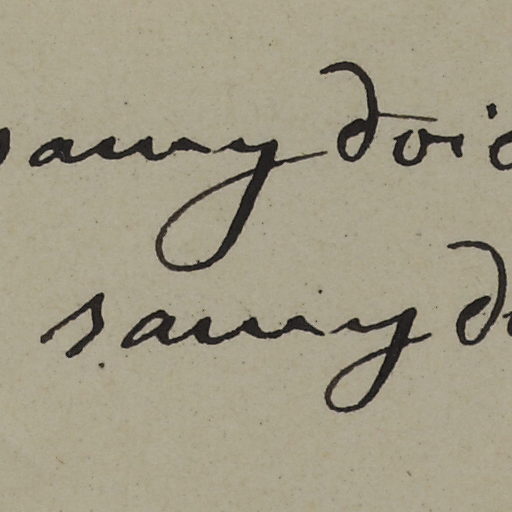 samy doic
samy do